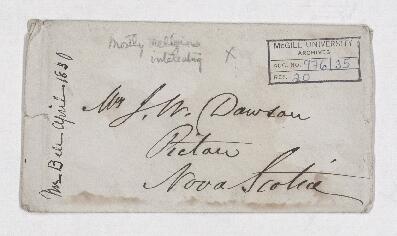 Mostly religious
interesting
X
McGILL UNIVERSITY
ARCHIVES
ACC. NO. 976/35
REF. 20
Mr J. W. Dawson
Pictou
Nova Scotia
Mr Bell April 1830